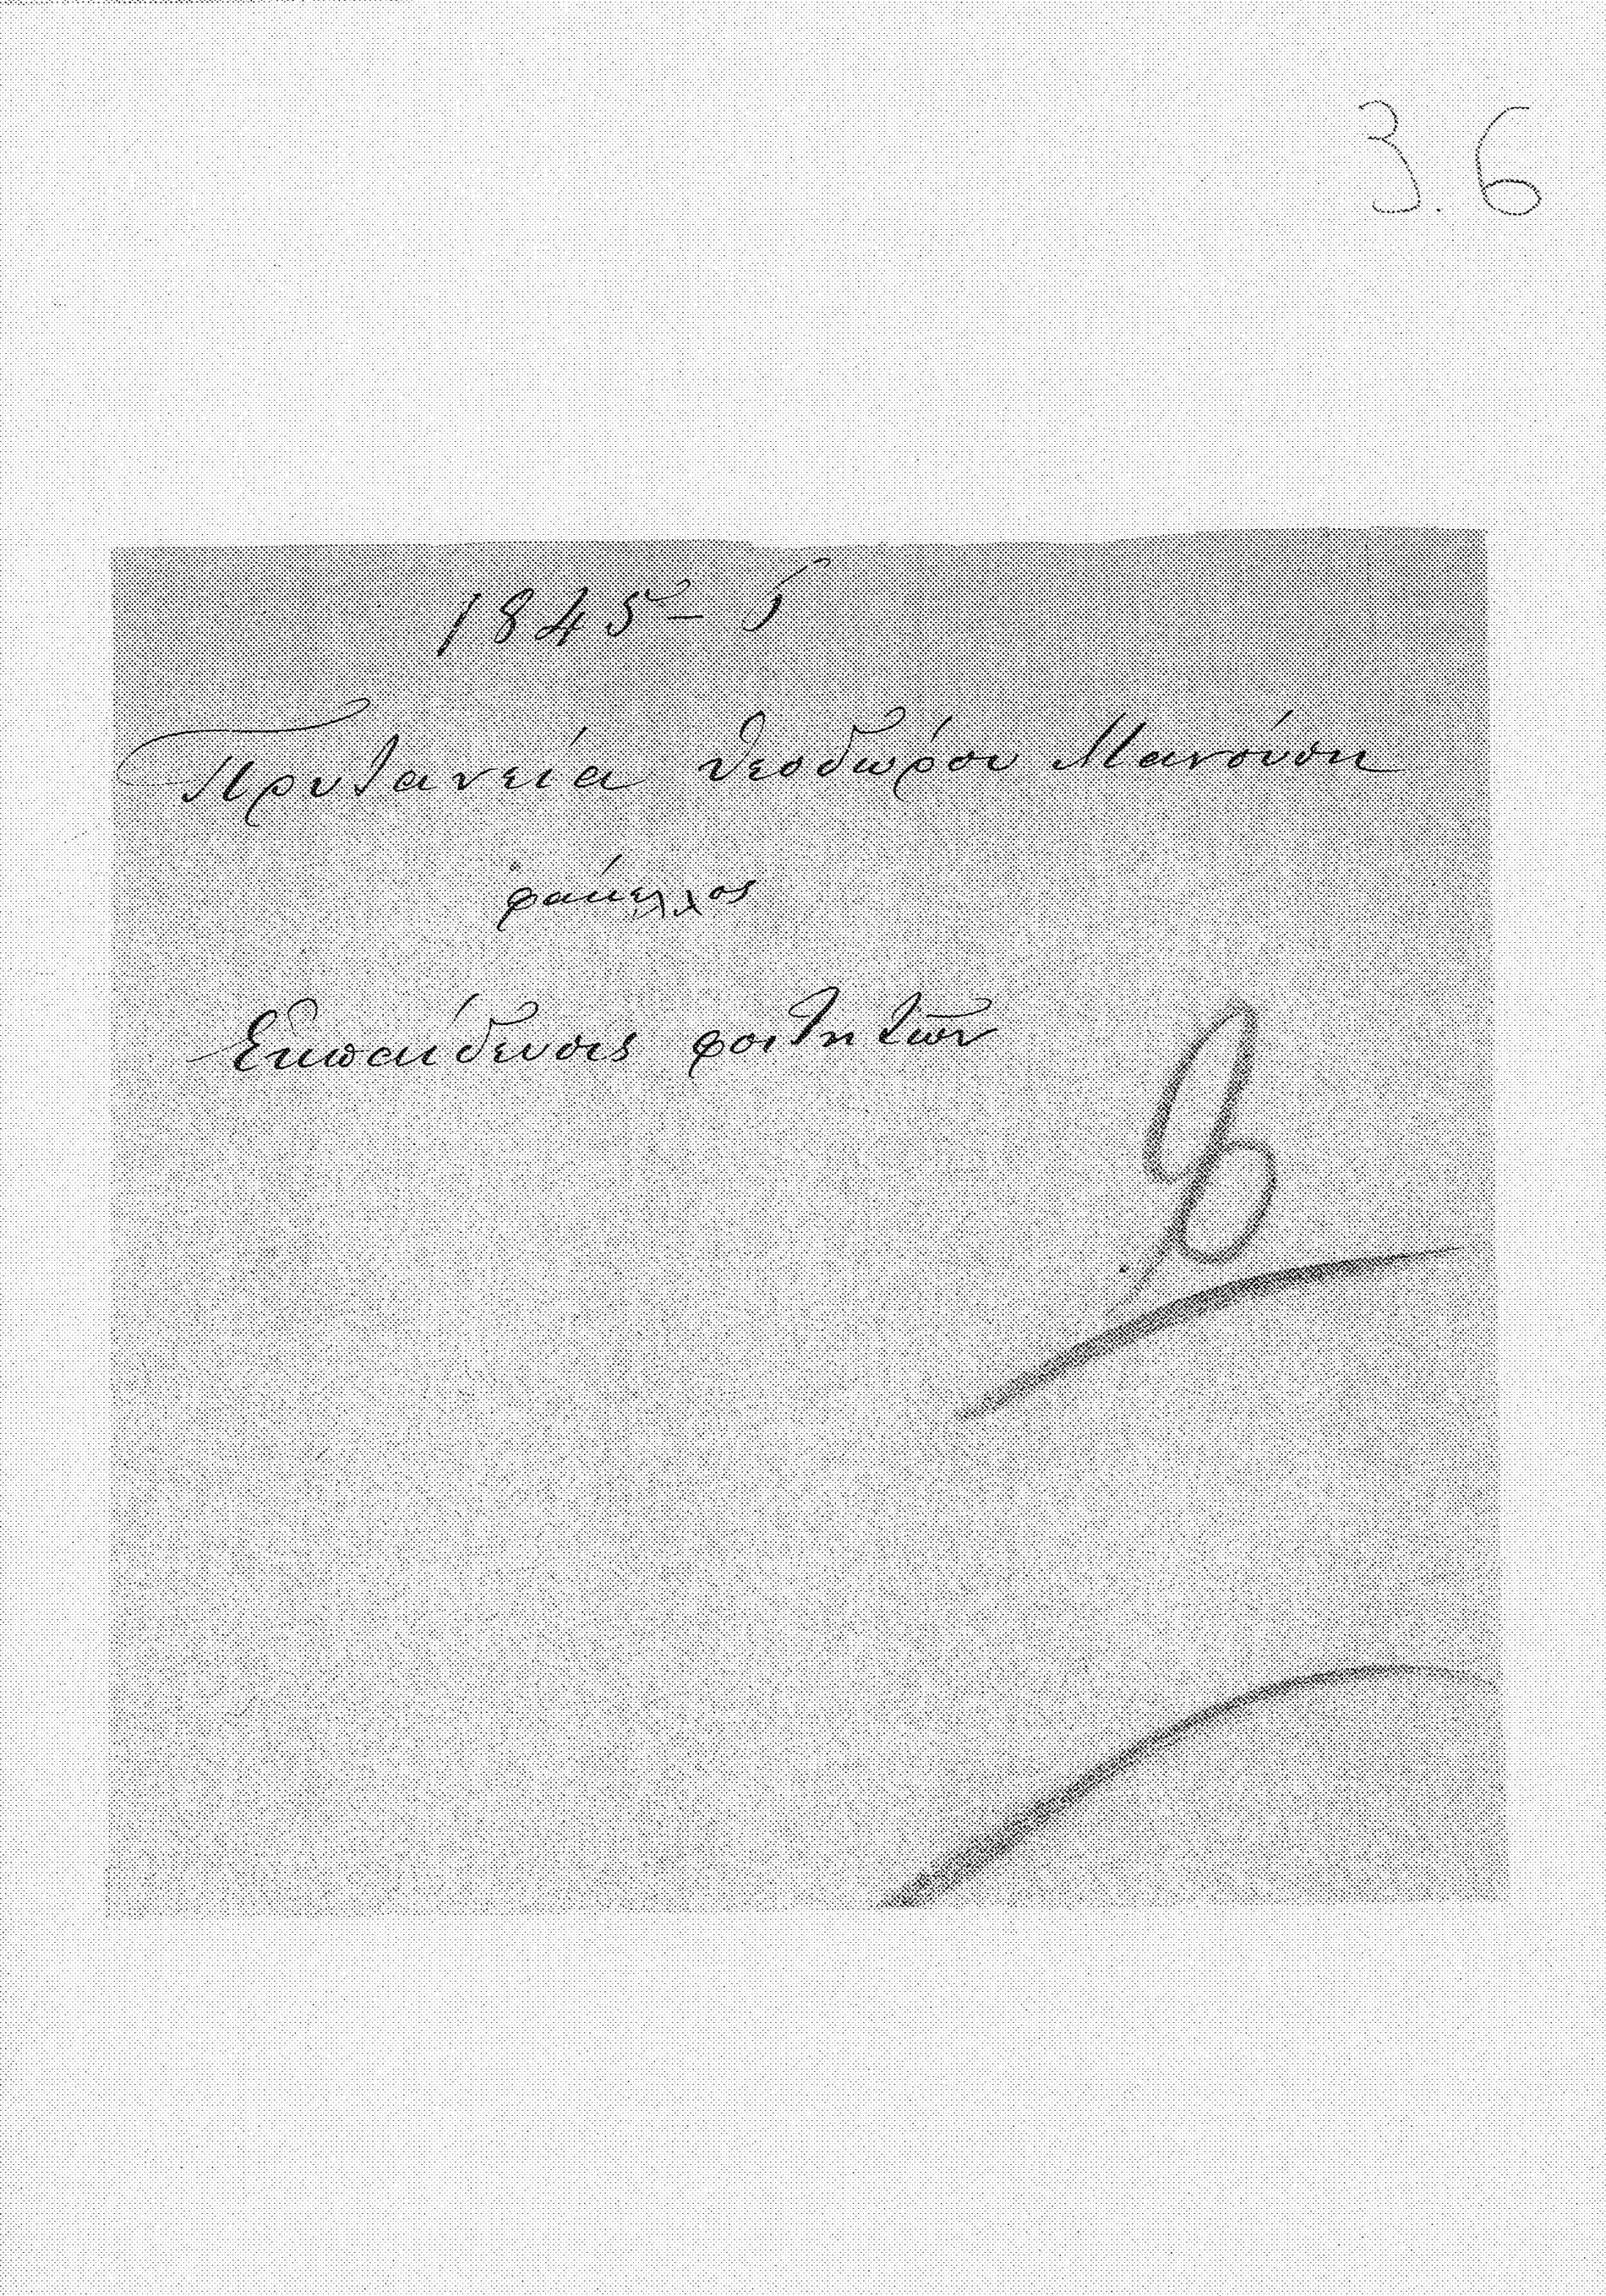 3.6
1845-
Πρυτανεία Θεοδώρου Μανούση
φάκελλος
Εκπαίδευσις φοιτητῶν